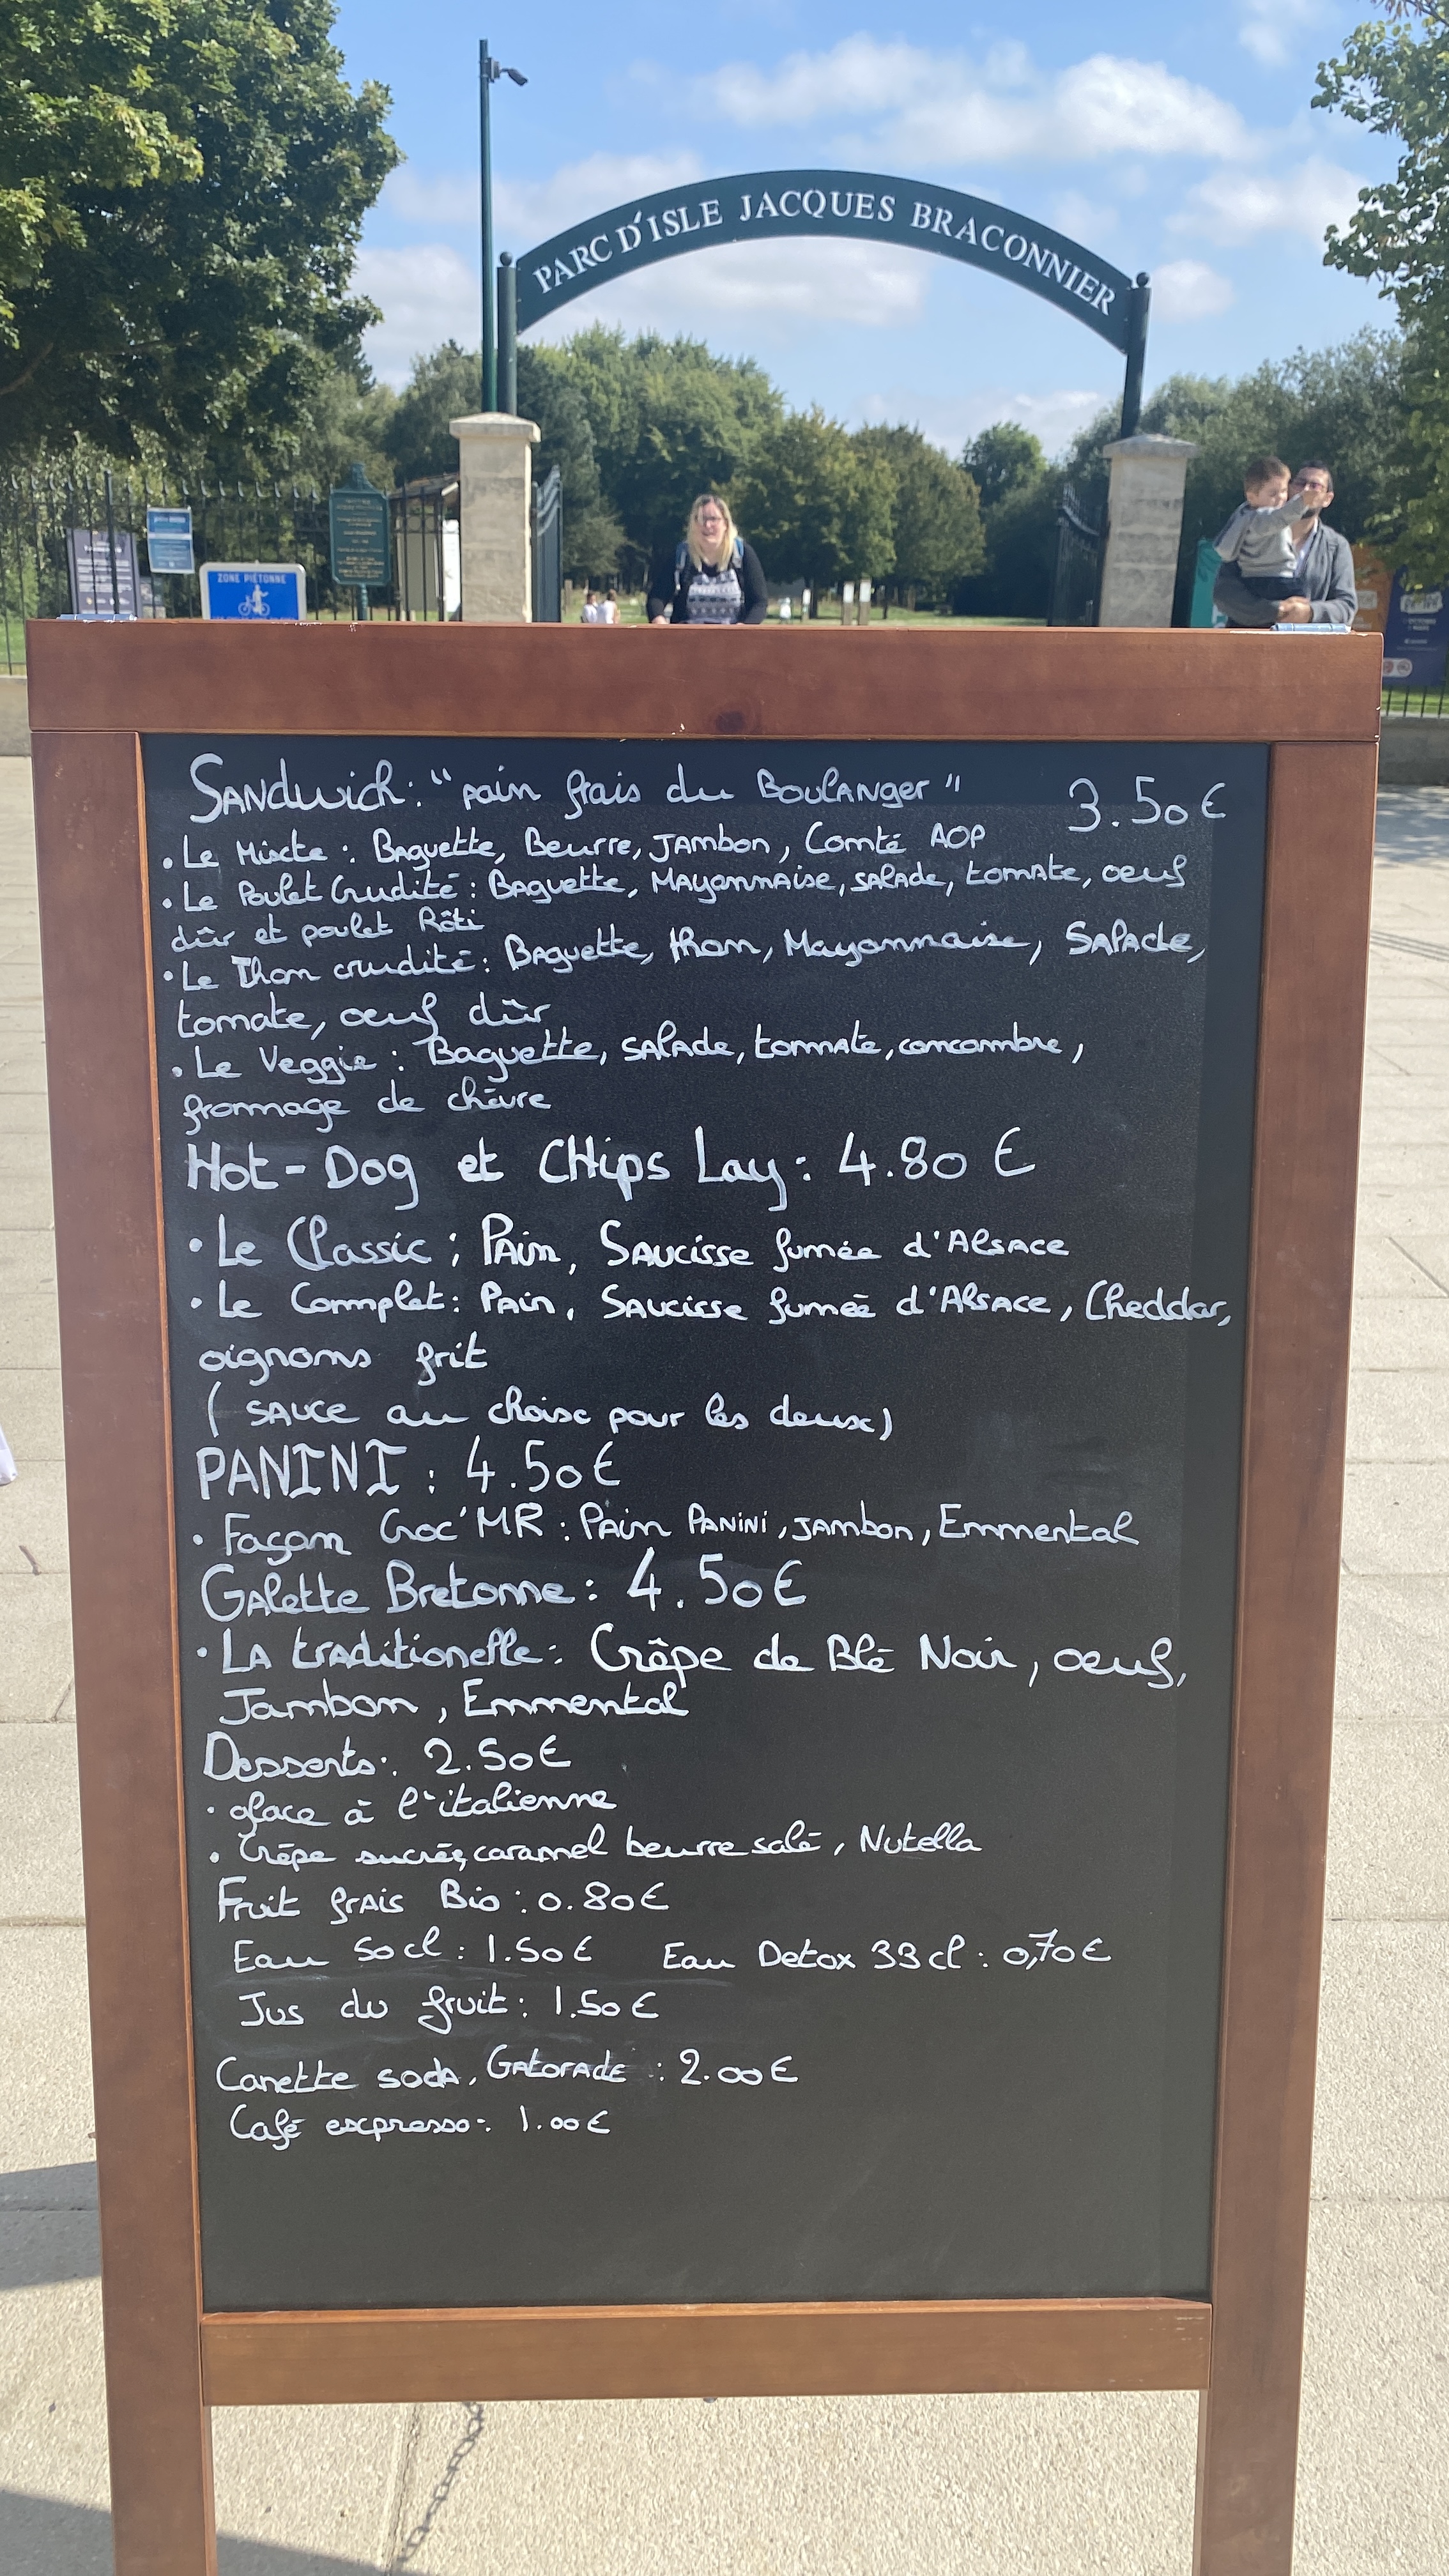 PARC D'ISLE JACQUES BRACONNIER
ZONE PIÉTONNE
Sandwich : "pain frais du Boulanger" 3.50€
• Le Mixte : Baguette, Beurre, Jambon, Comté AOP
• Le Poulet Crudité : Baguette, Mayonnaise, salade, tomate, oeuf
dûr et poulet Rôti
• Le Thon crudité : Baguette, thon, Mayonnaise, Salade,
tomate, oeuf dûr
• Le Veggie : Baguette, salade, tomate, concombre,
fromage de chèvre
Hot-Dog et CHips Lay : 4.80 €
• Le Classic ; Pain, Saucisse fumée d'Alsace
• Le Complet : Pain, Saucisse fumée d'Alsace, Cheddar,
oignons frit
( sauce au choix pour les deux)
PANINI : 4.50€
• Façon Croc'MR : Pain Panini, jambon, Emmental
Galette Bretonne : 4.50€
• La traditionelle : Crêpe de Blé Noir, oeuf,
Jambon, Emmental
Desserts : 2.50€
• glace à l'italienne
• Crêpe sucrée, caramel beurre salé, Nutella
Fruit frais Bio : 0.80€
Eau 50cl : 1.50€ Eau Detox 33cl : 0,70€
Jus du fruit : 1.50€
Canette soda, Gatorade : 2.00€
Café expresso : 1.00€